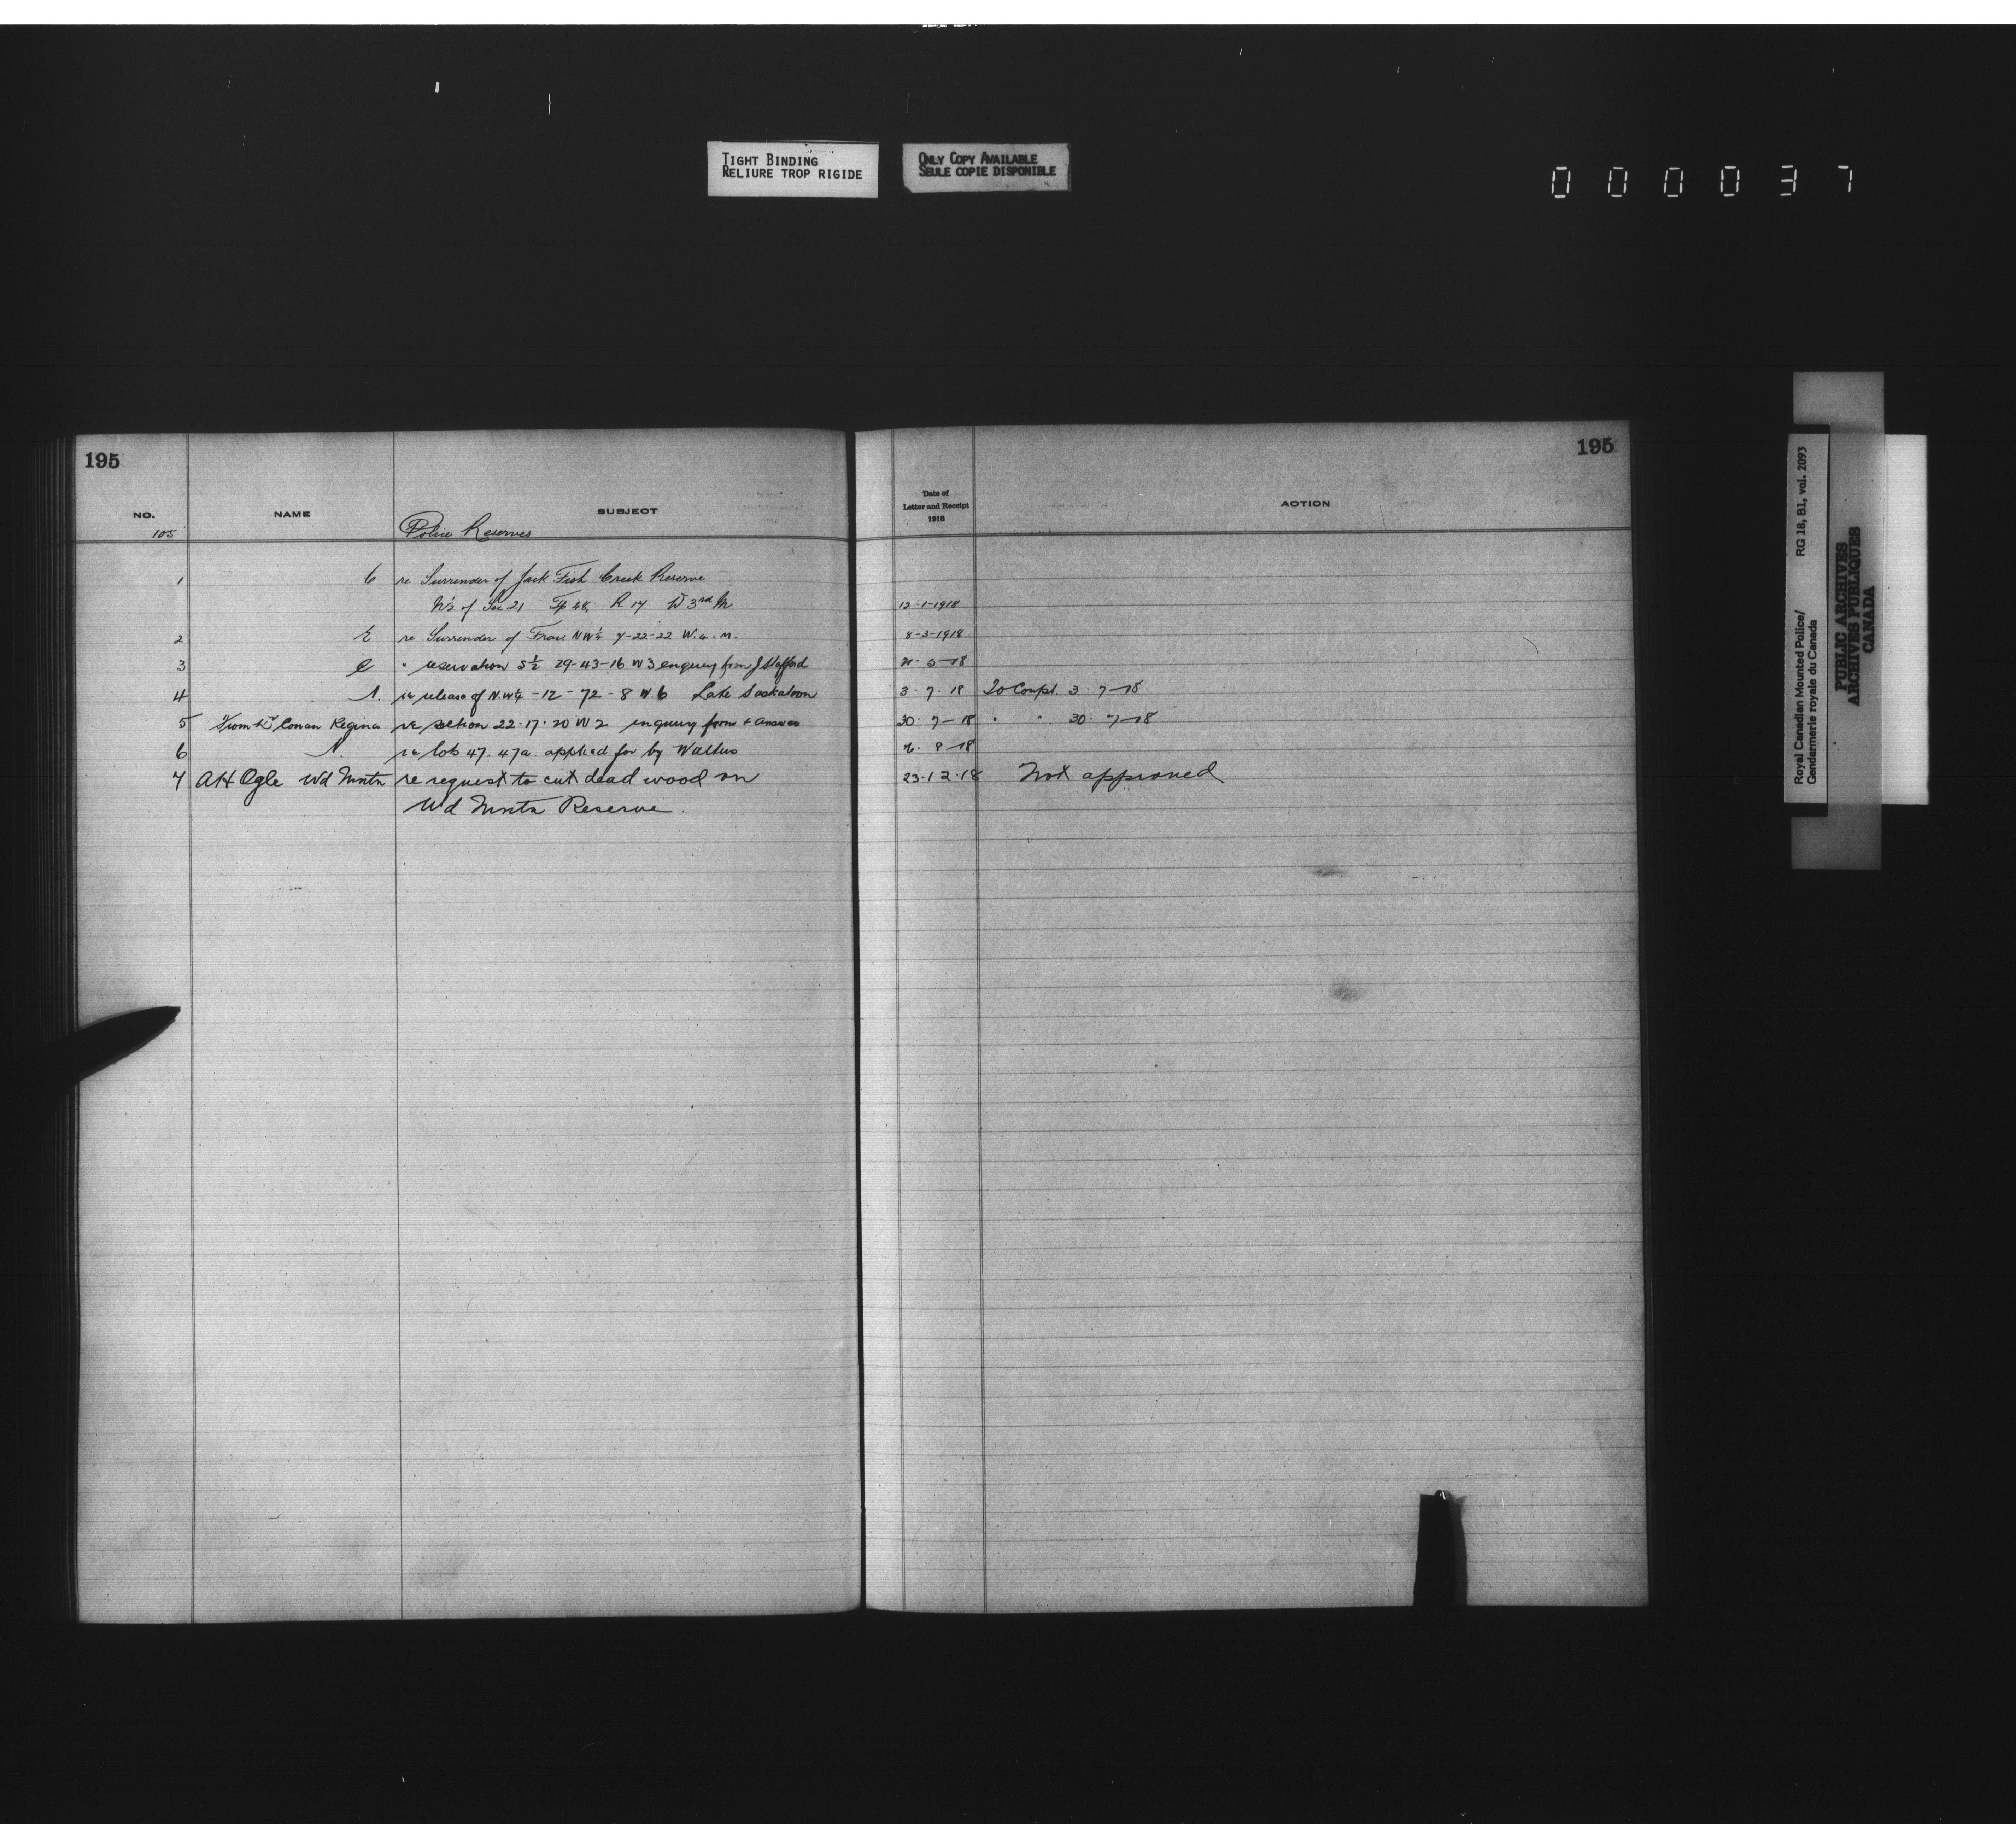 TIGHT BINDING
RELIURE TROP RIGIDE
ONLY COPY AVAILABLE
SEULE COPIE DISPONIBLE
000037
195
NO. NAME SUBJECT
105 Police Reserves
1 C re Surrender of Jack Fish Creek Reserve
N½ of Sec 21 Tp 48, R 17 W 3rd M
2 K re Surrender of Frac. NW¼ 7-22-22 W. 4. M.
3 C " reservation S½ 29-43-16 W3 enquiry from J Stafford
4 N. re release of N.W¼ -12-72-8 W.6 Lake Saskatoon
5 From Conan Regina re section 22.17.20 W2 inquiry from & answer
6 N re lots 47.47a applied for by
7 AH Ogle Wd Mntn re request to cut dead wood on
Wd Mntn Reserve.
195
Date of
Letter and Receipt
1918
ACTION
12-1-1918
8-3-1918
5-18
3.7.18 To Compt. 3.7-18
30.7-18 " " 30.7-18
8-18
23.12.18 Not approved
Royal Canadian Mounted Police/ RG 18, B1, vol. 2093
Gendarmerie royale du Canada
PUBLIC ARCHIVES
ARCHIVES PUBLIQUES
CANADA